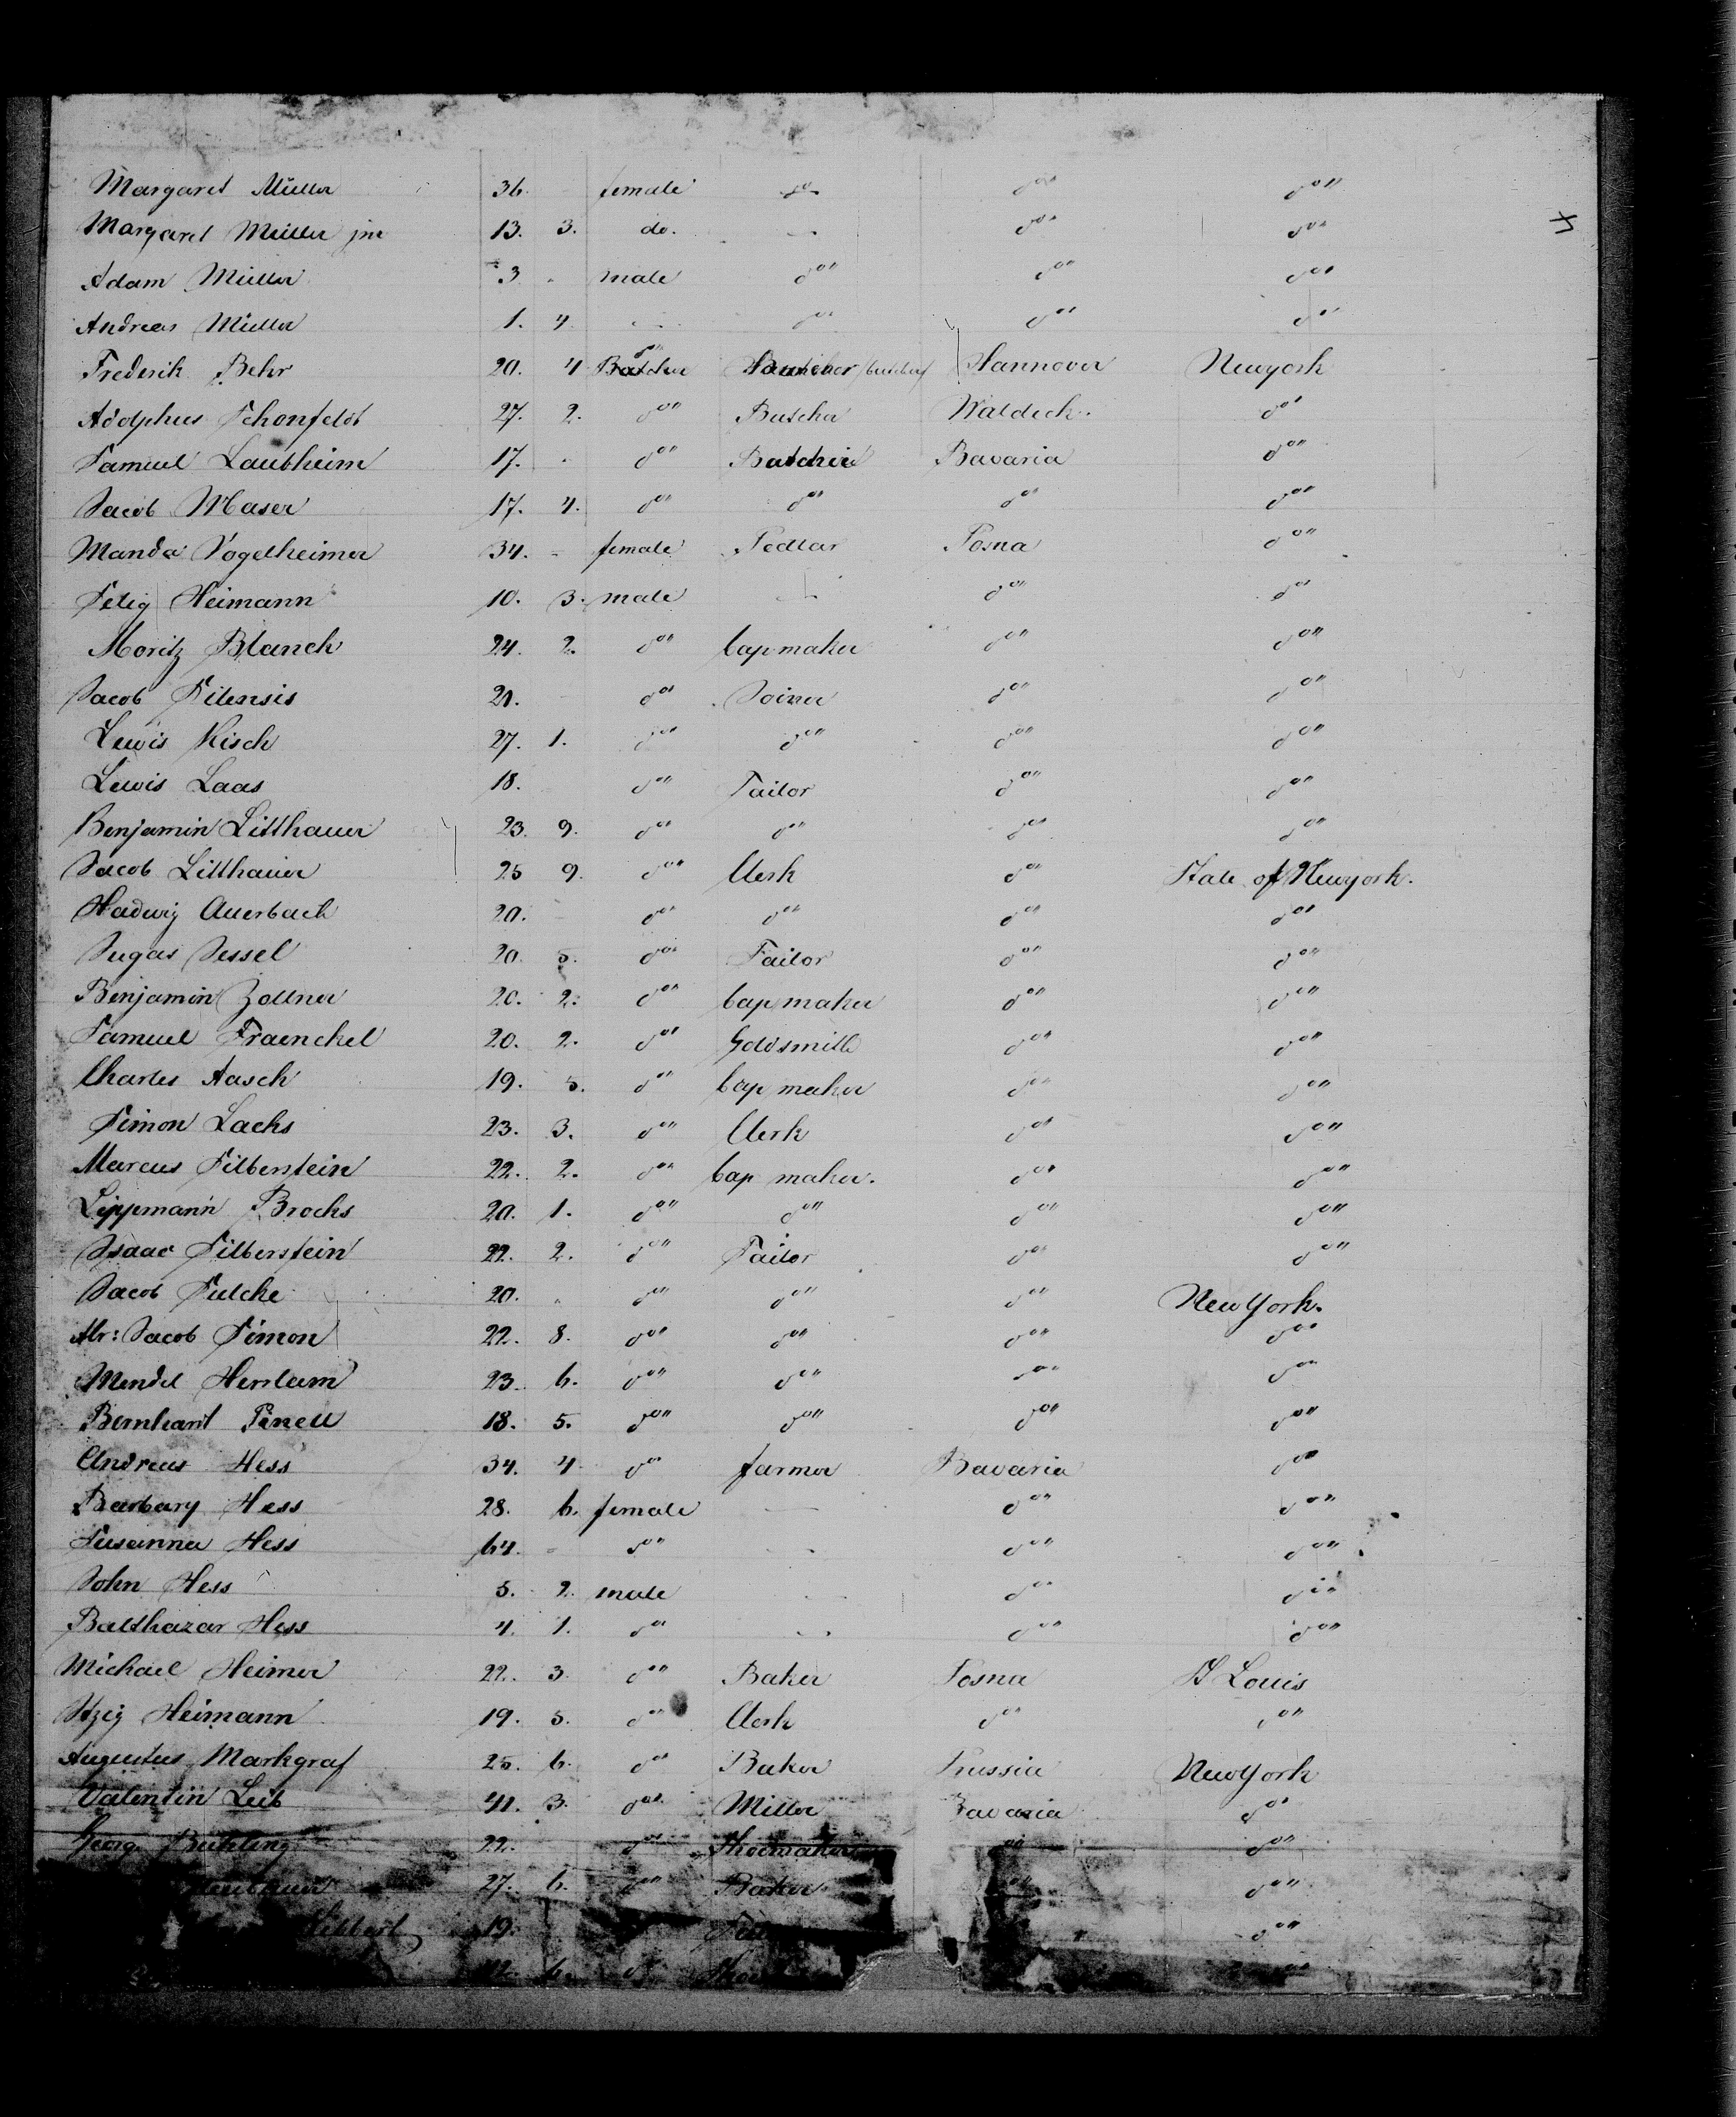 Margaret Müller 36. female do do" do"
Margaret Müller jne 13. 3. do. - do" do"
Adam Müller 3 - male do" do" do"
Andreas Müller 1. 4. - do" do" do"
Frederik Behr 20. 4 do" Butcher Hannover Newyork
Adolphus Schonfeldt 27. 2. do" Butcher Waldeck. do"
Samuel Laubheim 17. - do" Butcher Bavaria do"
Jacob Maser 17. 4. do" do" do" do"
Manda Vogelheimer 34. - female Pedlar Posna do"
Selig Heimann 10. 3. male - do" do"
Moritz Blanck 24. 2. do" Capmaker do" do"
Jacob Silensis 20. do" Joiner do" do"
Lewis Kisch 27. 1. do" do" do" do"
Lewis Laas 18. do" Tailor do" do"
Benjamin Litthauer 23. 9. do" do" do" do"
Jacob Litthauer 25 9. do" Clerk do" State of Newyork.
Hadwig Auerbach 20. - do" do" do" do"
Jugas Jessel 20. 5. do" Tailor do" do"
Benjamin Zollner 20. 2. do" Capmaker do" do"
Samuel Fraenckel 20. 2. do" Goldsmith do" do"
Charles Aasch 19. 5. do" Cap maker do" do"
Simon Lachs 23. 3. do" Clerk do" do"
Marcus Silberstein 22. 2. do" Cap maker. do" do"
Lippmann Brochs 20. 1. do" do" do" do"
Isaac Silberstein 22. 2. do" Tailor do" do"
Jacob Sulcke 20. - do" do" do" NewYork.
Abr: Jacob Simon 22. 8. do" do" do" do"
Mendel Herslam 23. 6. do" do" do" do"
Bernhard Pinell 18. 5. do" do" do" do"
Andreas Hess 34. 4. do" farmer Bavaria do"
Barbary Hess 28. 6. female - do" do"
Susanna Hess 64. - do" - do" do"
John Hess 5. 2. male - do" do"
Balthazar Hess 4. 1. do" - do" do"
Michael Heimer 22. 3. do" Baker Posna St Louis
Itzig Heimann 19. 5. do" Clerk do" do"
Augustus Markgraf 25. 6. do" Baker Prussia NewYork
Valentin Leib 41. 3. do" Miller Bavaria do"
Georg 22. do" Shoemaker do" do"
27. 6. do" Baker do" do"
19. do"
6. do"